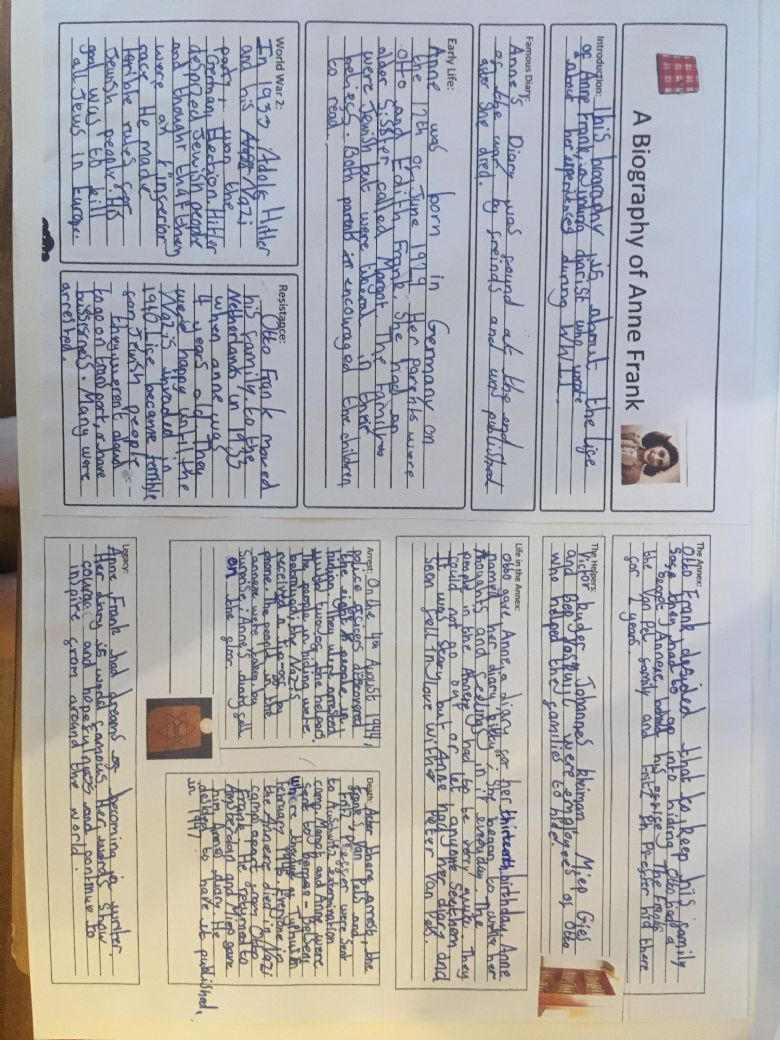 A Biography of Anne Frank
Introduction: This biography is about the life
of Anne Frank, a young diarist who wrote
about her experiences during WWII.
Famous Diary:
Anne's Diary was found at the end
of the war by freinds and was published
after she died.
Early Life:
Anne was born in Germany on
the 12th of June 1929. Her parents were
Otto and Edith Frank. She had an
older sister called Margot. The family
were Jewish but were liberal in their
beliefs. Both parents encouraged the children
to read.
World War 2:
In 1933 Adolf Hitler
and his Nazi
party won the
German Election. Hitler
despised Jewish people
and thought that they
were an inferior
race. He made
terrible rules for
Jewish people. His
goal was to kill
all Jews in Europe.
Resistance:
Otto Frank moved
his family to the
Netherlands in 1933
when anne was
4 years old. They
were happy until the
Nazi's invaded in
1940. Life became terrible
for Jewish people -
they weren't allowed
to go on transport, or have
bussisness. Many were
arrested.
The Annex:
Otto Frank desided that to keep his family
safe they had to go into hiding. Otto had a
secret Annexe behind his office. The Franks
the Van Pels family and Fritz hid there
for 2 years.
The Helpers:
Victor kugler, Johannes kleiman, Miep Gies
and Bep Voskuijl were employees of Otto
who helped the families to hide.
Life in the Annex:
Otto gave Anne a diary for her thirteenth birthday. Anne
named her diary kitty. She began to write her
thoughts and feelings in it everyday. The
people in the Annexe had to be very quite. They
could not go out or let anyone see them.
It was scary but Anne had her diary and
soon fell in love with Peter Van Pels.
Arrest: On the 4th August 1944,
police officers discovered
the eight people in
hiding. They were arrested
plus two of the helpers.
The people in hiding were
betrayed: the Nazi's
received a tip-off by
phone. The people in the
annexe were taken by
surprise; Anne's diary fell
on the floor.
Death: After there arrest, the
Frank's, Van Pels and
Fritz Pfeffer were sent
to Auschwitz extermination
camp. Margot and Anne were
sent to Bergen-Belsen
where they died of Typhus in
february 1945. Everyone in
the Annexe died in Nazi
camps apart from Otto
Frank. He returned to
Amsterdam and Miep gave
him Anne's diary. He
decided to have it published
in 1947.
Legacy:
Anne Frank had dreams of becoming a writer.
Her diary is world famous. Her words show
courage and hopefulness and continue to
inspire from around the world.